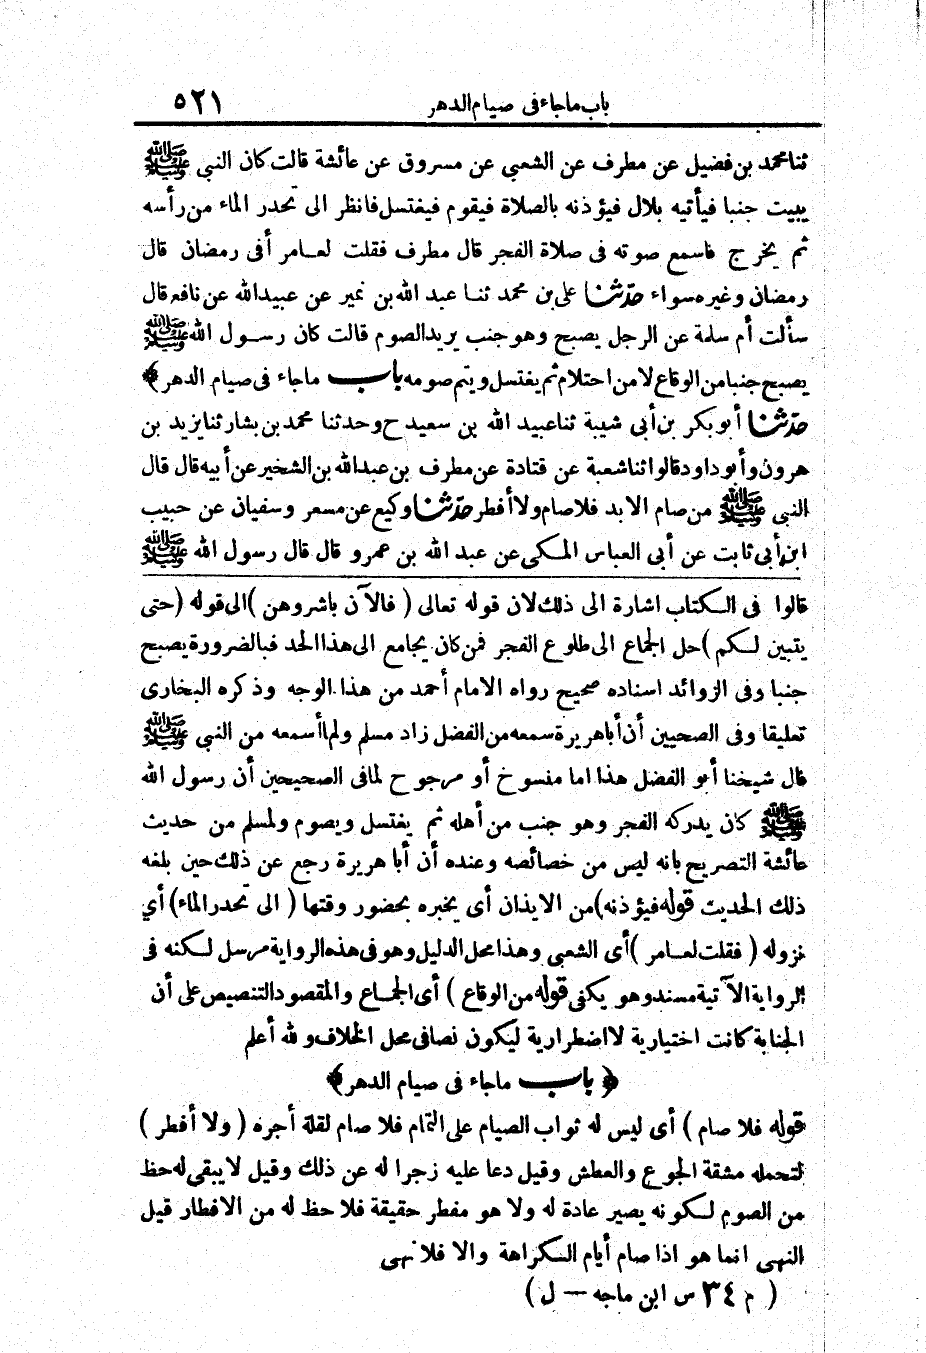 باب ماجاء فى صيام الدهر ٥٢١
ثنا محمد بن فضيل عن مطرف عن الشعبي عن مسروق عن عائشة قالت كان النبي ﷺ
يبيت جنبا فيأتيه بلال فيؤذنه بالصلاة فيقوم فيغتسل فانظر الى تحدر الماء من رأسه
ثم يخرج فاسمع صوته فى صلاة الفجر قال مطرف فقلت لعامر أفى رمضان قال
رمضان وغيره سواء حدّثنا على بن محمد ثنا عبد الله بن نمير عن عبيدالله عن نافع قال
سألت أم سلمة عن الرجل يصبح وهو جنب يريد الصوم قالت كان رسول الله ﷺ
يصبح جنبا من الوقاع لا من احتلام ثم يغتسل ويتم صومه باب ماجاء فى صيام الدهر ﴾
حدّثنا أبو بكر بن أبى شيبة ثنا عبيد الله بن سعيد ح وحدثنا محمد بن بشار ثنا يزيد بن
هرون وأبو داود قالوا ثنا شعبة عن قتادة عن مطرف بن عبدالله بن الشخير عن أبيه قال قال
النبى ﷺ من صام الابد فلا صام ولا أفطر حدّثنا وكيع عن مسعر وسفيان عن حبيب
ابن أبى ثابت عن أبى العباس المكى عن عبد الله بن عمرو قال قال رسول الله ﷺ
قالوا فى الكتاب اشارة الى ذلك لان قوله تعالى ( فالآن باشروهن ) الى قوله ( حتى
يتبين لكم ) حل الجماع الى طلوع الفجر فمن كان يجامع الى هذا الحد فبالضرورة يصبح
جنبا وفى الزوائد اسناده صحيح رواه الامام أحمد من هذا الوجه وذكره البخارى
تعليقا وفى الصحيين أن أبا هريرة سمعه من الفضل زاد مسلم ولم أسمعه من النبي ﷺ
قال شيخنا أبو الفضل هذا اما منسوخ أو مرجوح لمافى الصحيحين أن رسول الله
ﷺ كان يدركه الفجر وهو جنب من أهله ثم يغتسل ويصوم ولمسلم من حديث
عائشة التصريح بانه ليس من خصائصه وعنده أن أبا هريرة رجع عن ذلك حين بلغه
ذلك الحديث قوله فيؤذنه ) من الايذان أى يخبره بحضور وقتها ( الى تحدر الماء ) أي
نزوله ( فقلت لعامر ) أى الشعبى وهذا محل الدليل وهو فى هذه الرواية مرسل لكنه فى
الرواية الآتية مسند وهو يكفى قوله من الوقاع ) أى الجماع والمقصود التنصيص على أن
الجنابة كانت اختيارية لا اضطرارية ليكون نصا فى محل الخلاف ولله أعلم
﴿ باب ماجاء فى صيام الدهر ﴾
قوله فلا صام ) أى ليس له ثواب الصيام على التمام فلا صام لقلة أجره ( ولا أفطر )
لتحمله مشقة الجوع والعطش وقيل دعا عليه زجرا له عن ذلك وقيل لا يبقى له حظ
من الصوم لكونه يصير عادة له ولا هو مفطر حقيقة فلا حظ له من الافطار قيل
النهى انما هو اذا صام أيام الكراهة والا فلا نهى
( م ٣٤ س ابن ماجه — ل )